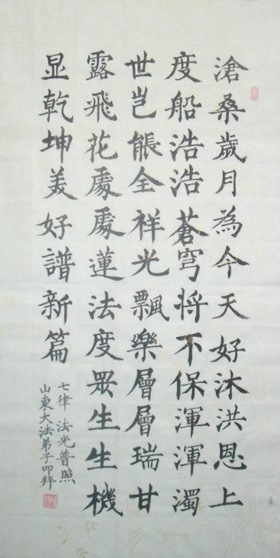 滄桑歲月為今天好沐洪恩上
度船浩浩蒼穹將不保渾渾濁
世岂能全祥光飄樂層層瑞甘
露飛花處處蓮法度眾生生機
显乾坤美好譜新篇
七律 法光普照
山東大法弟子叩拜